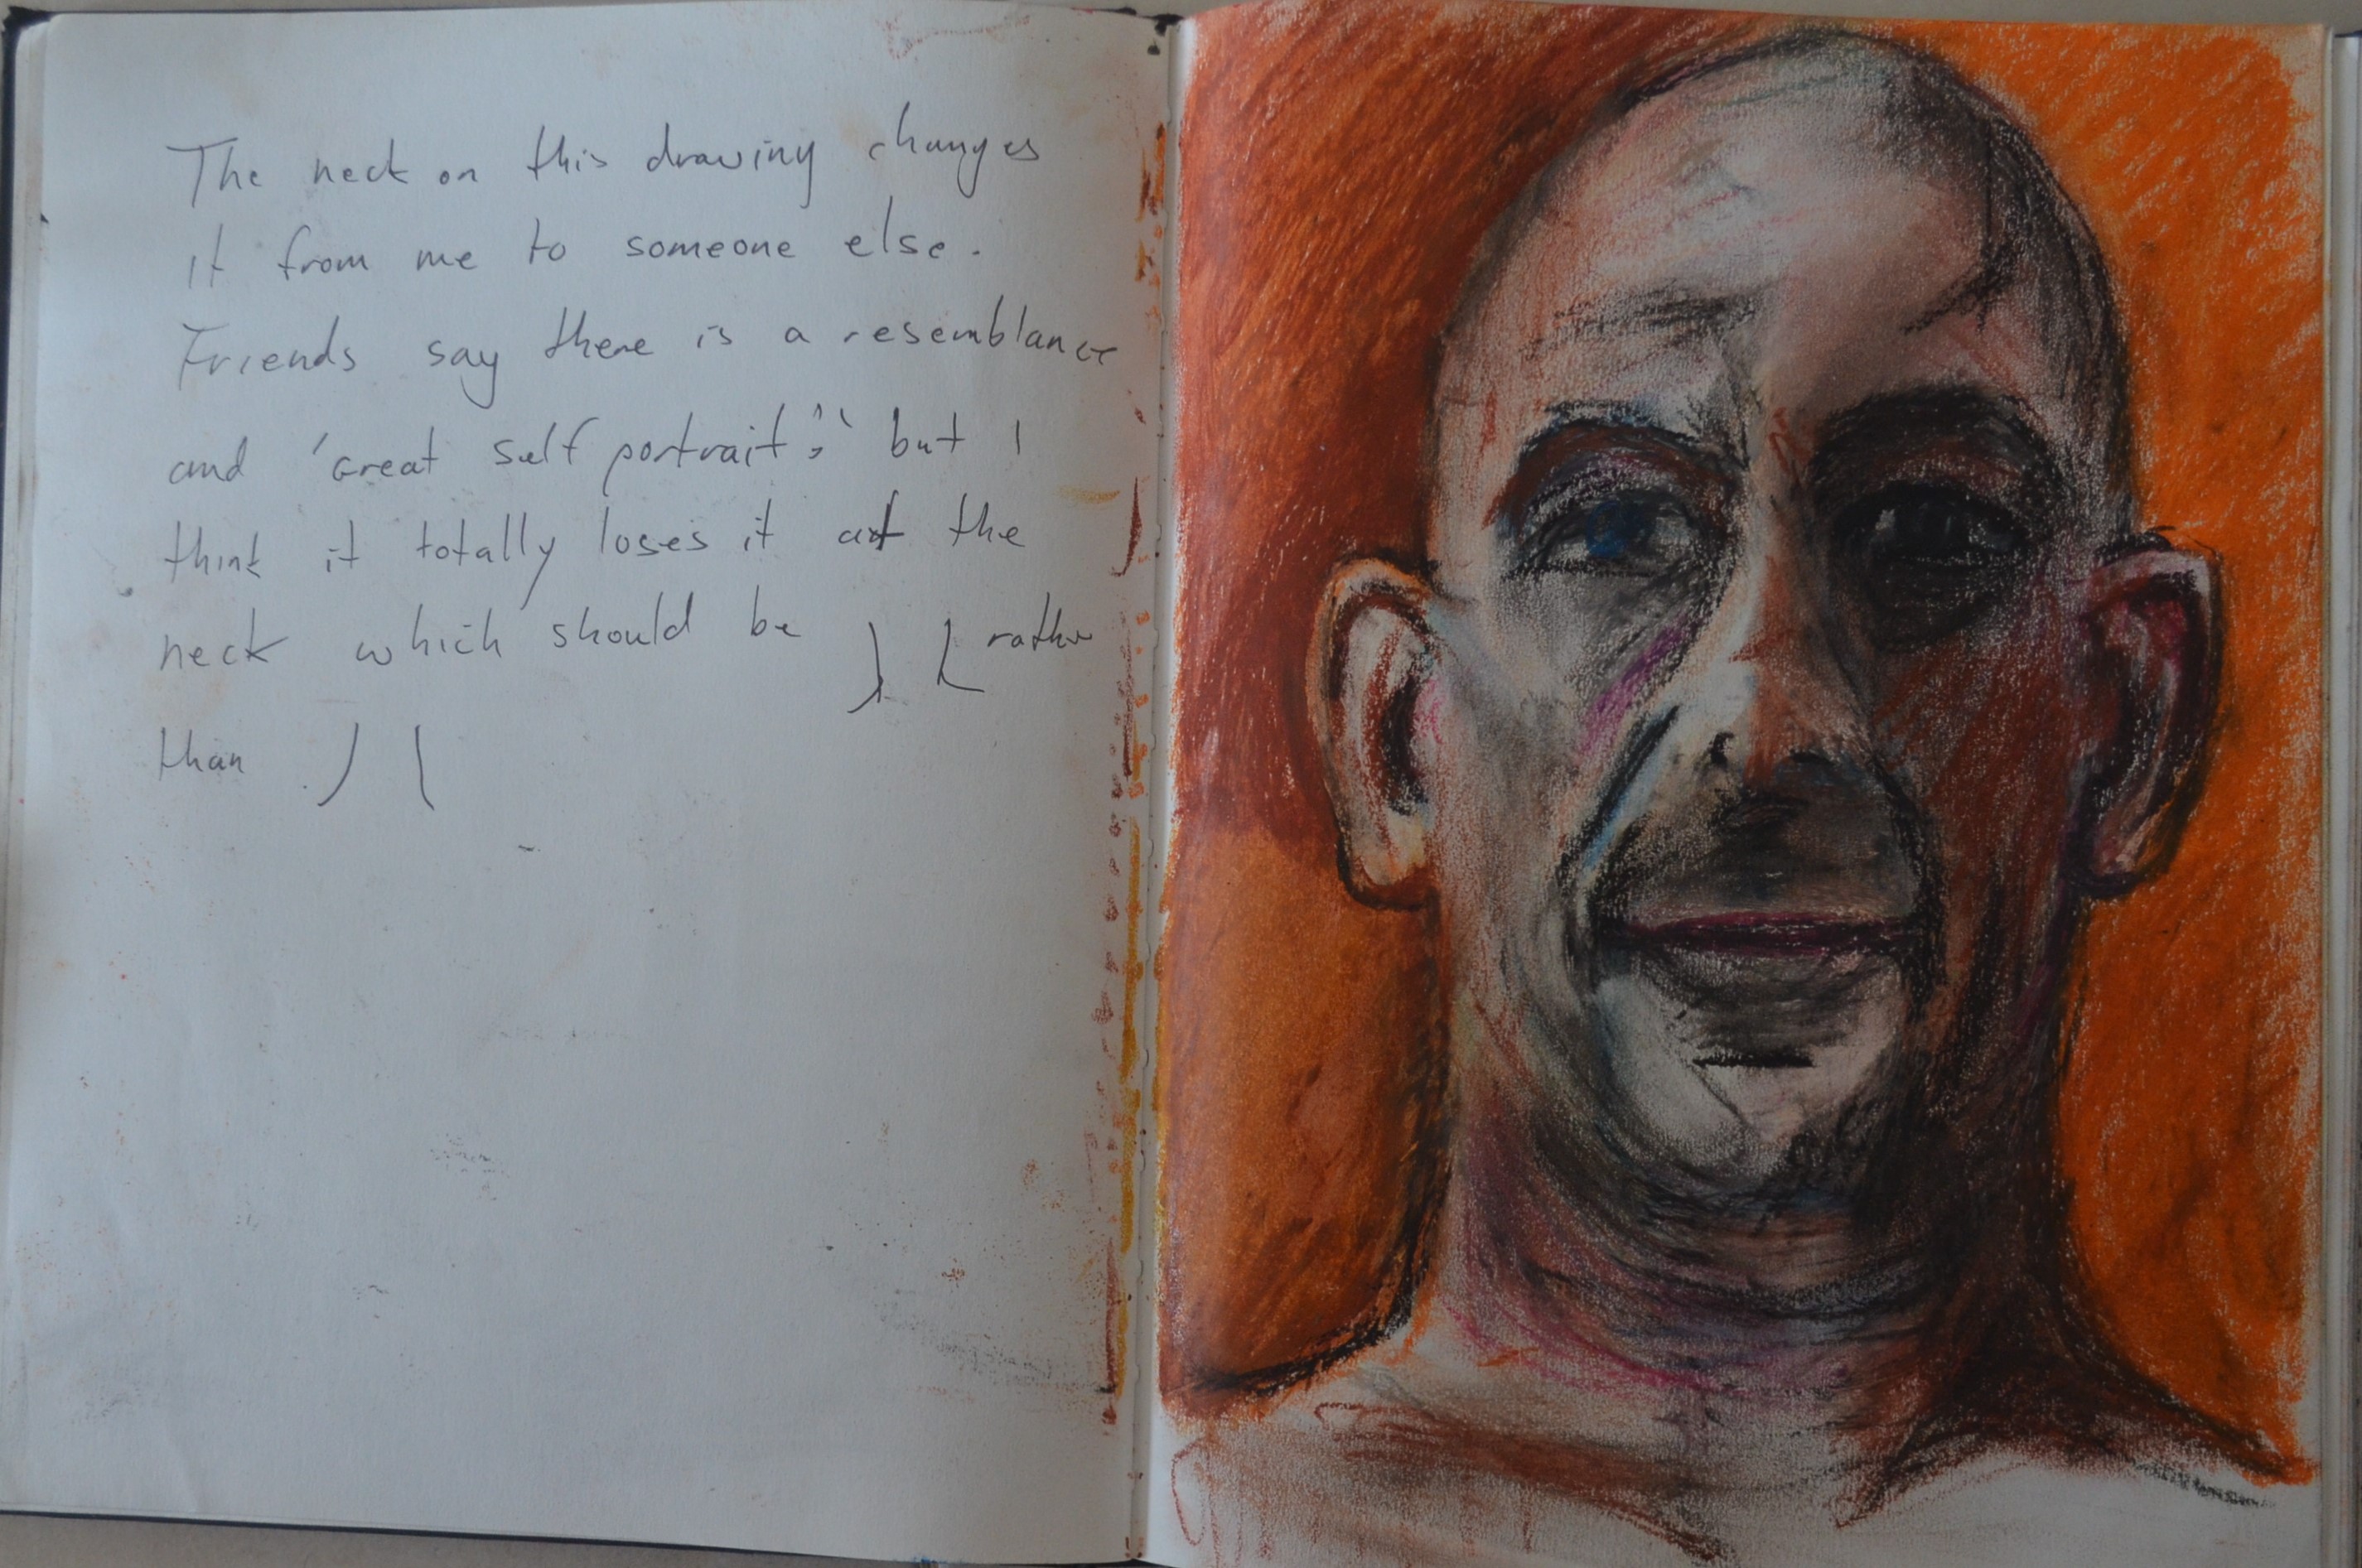 The neck on this drawing changes
it from me to someone else.
Friends say there is a resemblance
and 'Great self portrait;' but I
think it totally loses it at the
neck which should be ) ( rather
than ) (